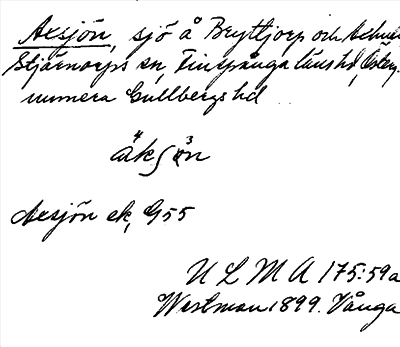 Axsjön, sjö å Bryttjorp och
Stjärnorps sn, Finspånga länshd, Österg.
numera Gullbergs hd
Axsjön ek, G55
U L M A 175:59a
Westman 1899. Vånga